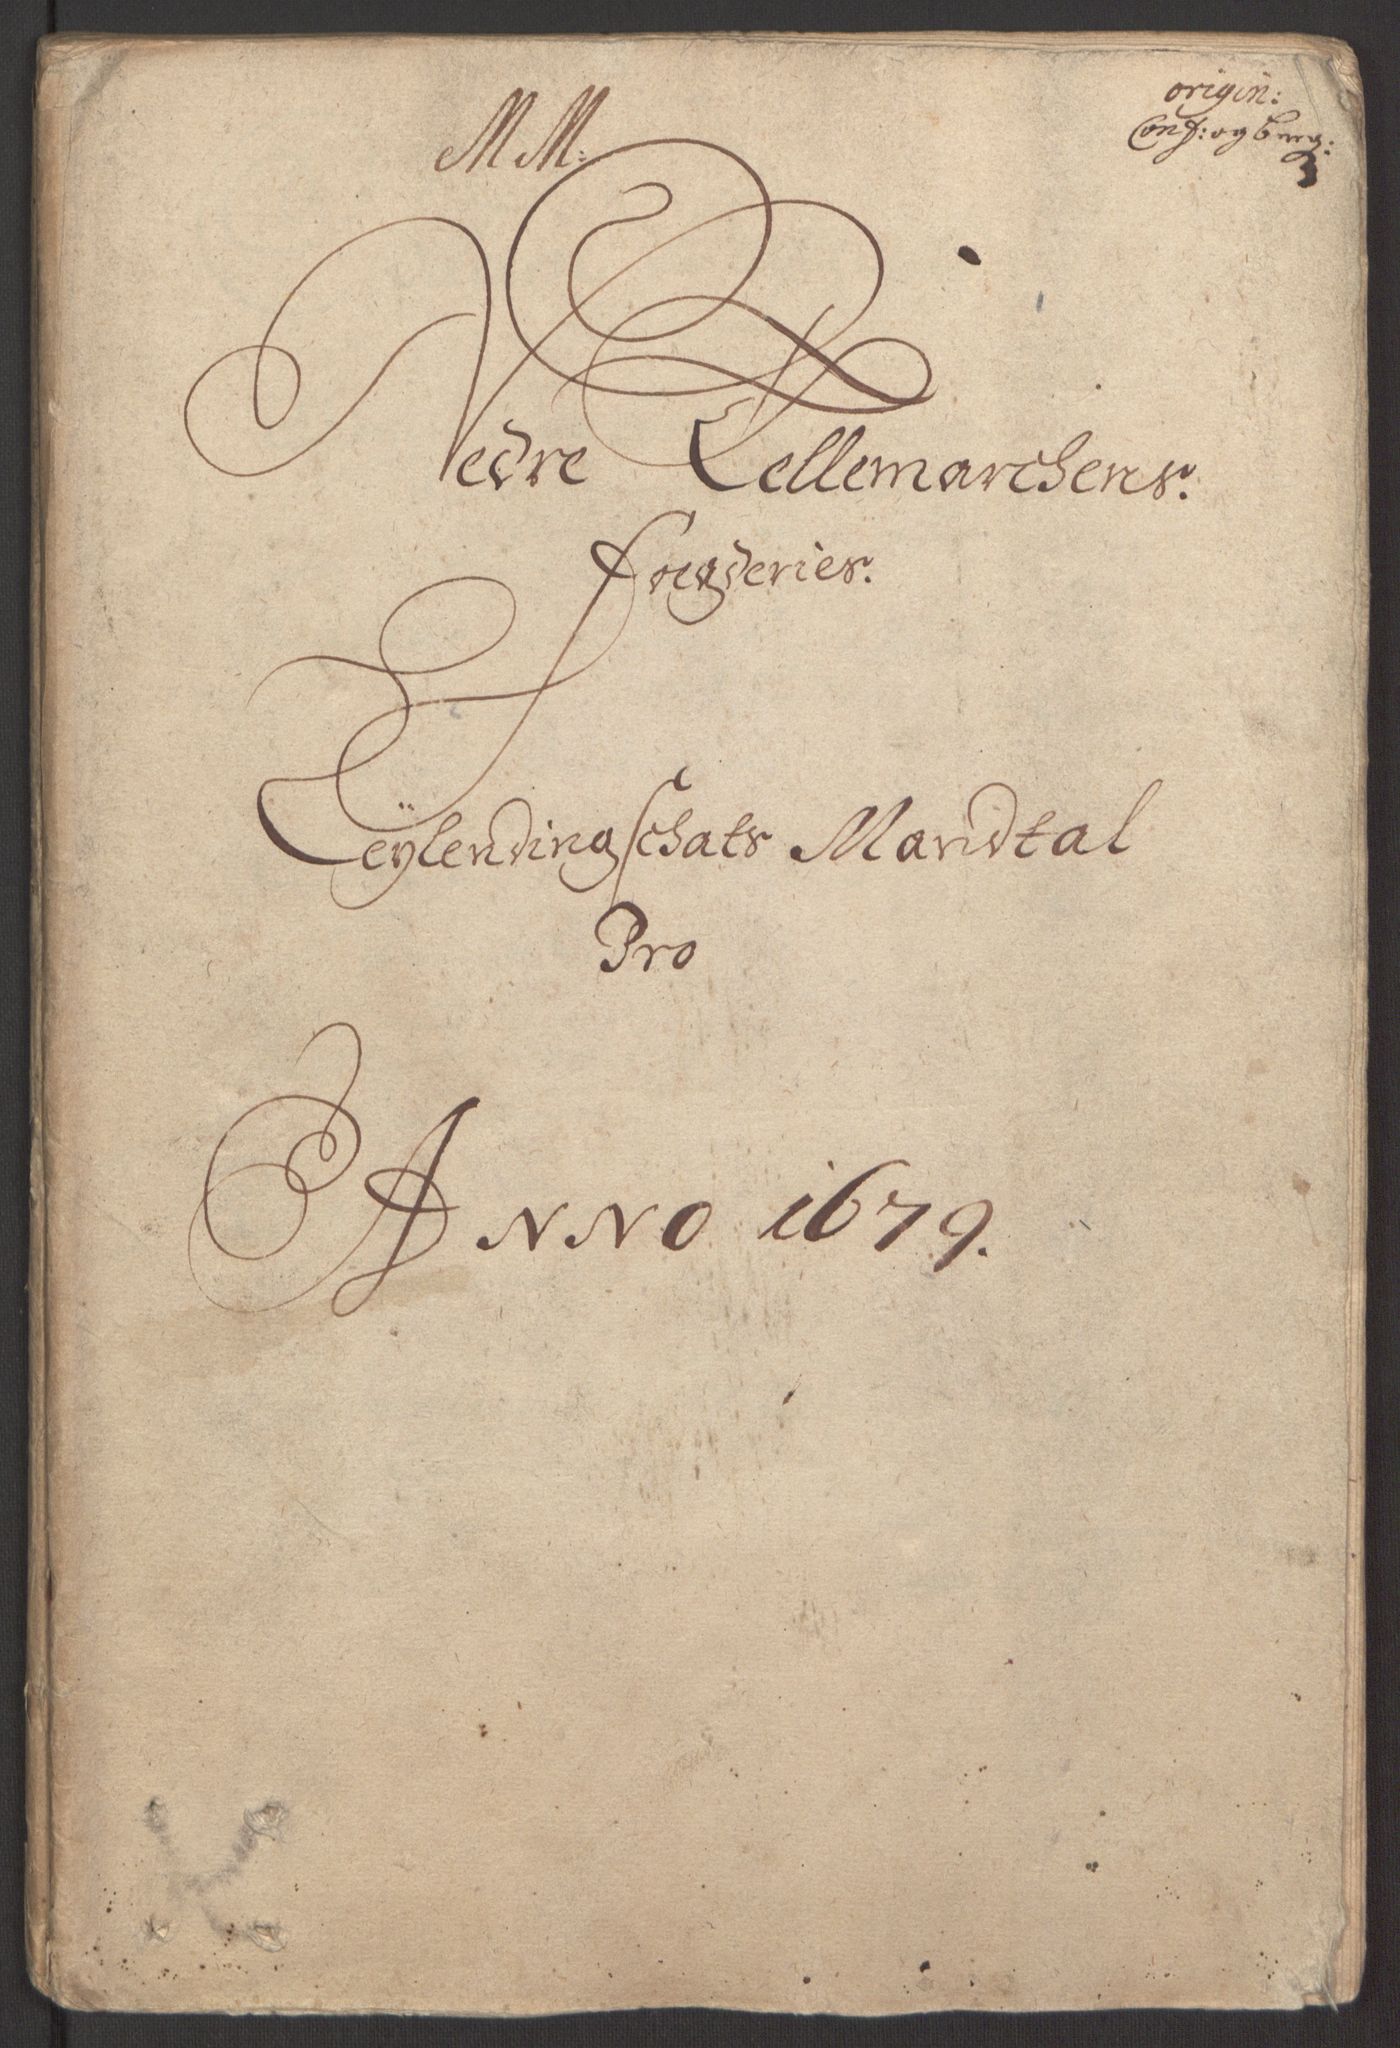 MM:
origin:
Conf: og bereg:
Nedre Tellemarchens.
fougderies.
Leÿlendingschats Mandtal
Pro
ANNO 1679.